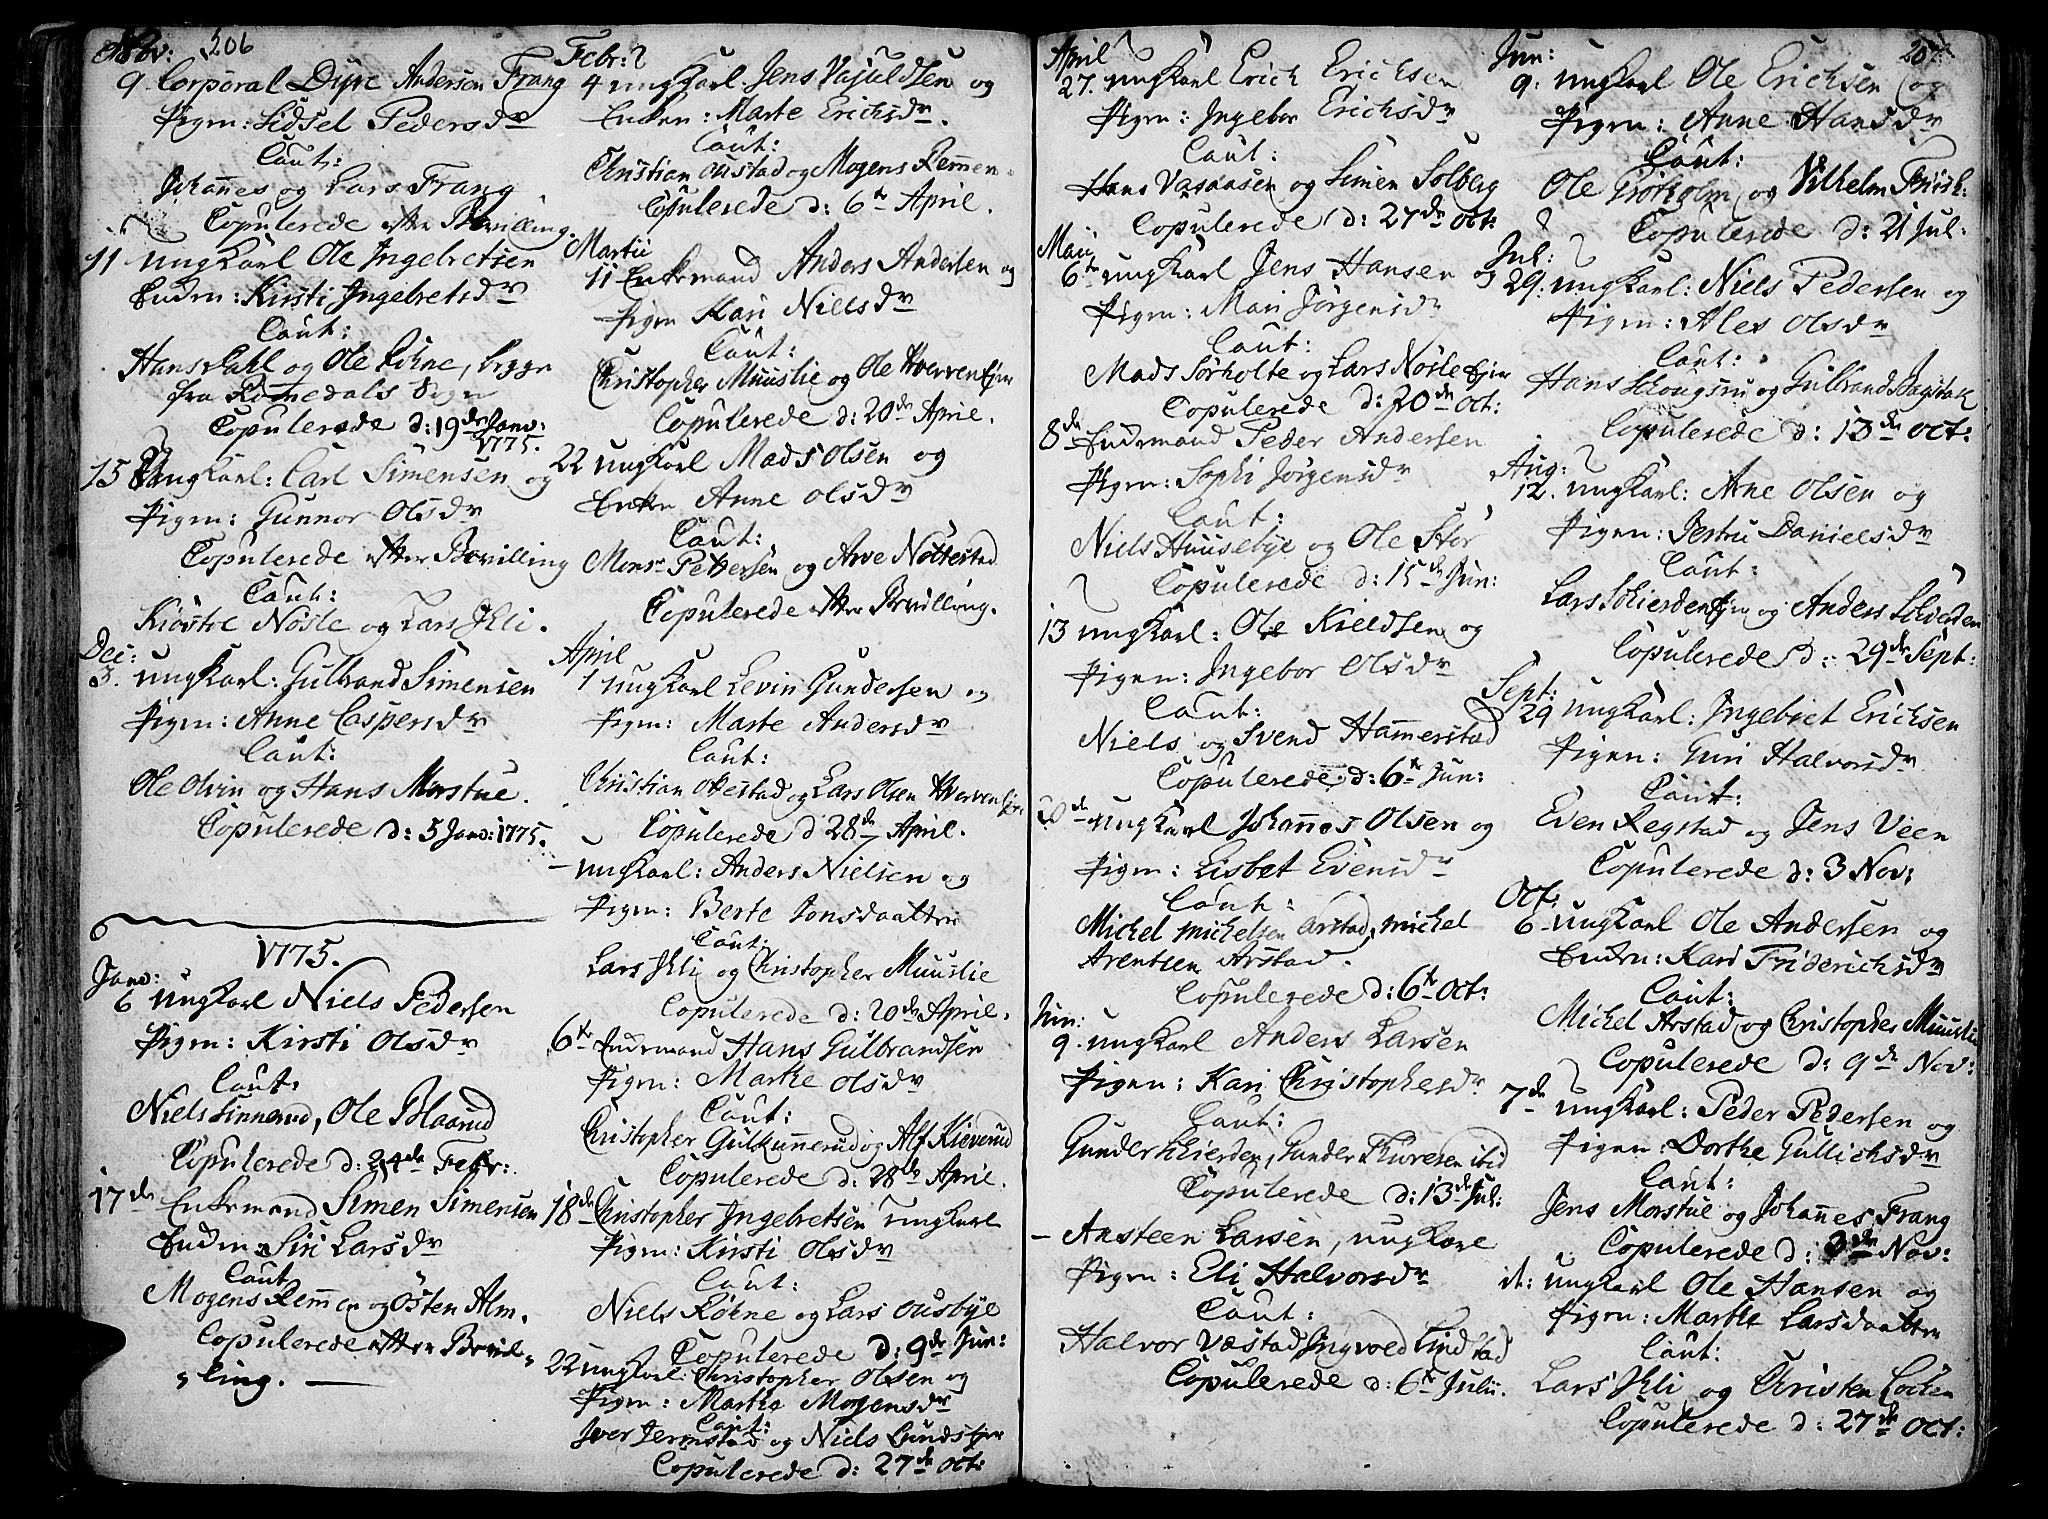 206
Nov:
9. Corporal Dyre Andersen Frang
Pigen: Sidsel Pedersdr
Caut:
Johannes og Lars Frang
Copulerede efter Bevilling.
11 ungkarl Ole Ingebretsen
Enken: Kirsti Ingebretsdr
Caut:
Hans Dahl og Ole Røhne, begge
fra Romedals Sogn
Copulerede d: 19de Janv:
1775.
15 Ungkarl: Carl Simensen og
Pigen: Gunnor Olsdr
Copulerede efter Bevilling
Caut:
Kiøstol Nøsle og Lars Ihli.
Dec:
3. ungkarl: Gulbrand Simensen
Pigen: Anne Caspersdr
Caut:
Ole Olvin og Hans Morstue.
Copulerede d: 5 Janv: 1775.
1775.
Janv:
6 ungkarl Niels Pedersen
Pigen: Kirsti Olsdr
Caut:
Niels Finnerud, Ole Blaarud
Copulerede d: 24de Febr:
17de Enkemand Simen Simensen
Enken Siri Larsdr
Caut
Mogens Remmen og Østen Alm.
Copulerede efter Bevil-
ling.
Febr:
4 ungkarl Jens Vajuldsen og
Enken: Marte Erichsdr.
Caut:
Christian Oustad og Mogens Remmen
Copulerede d: 6te April.
Martii
11 Enkemand Anders Andersen og
Pigen Kari Nielsdr
Caut:
Christopher Muuslie og Ole Hverven Ejer
Copulerede d: 20de April.
22 ungkarl Mads Olsen og
Enken Anne Olsdr
Caut:
Monsr Pettersen og Arve Nøttestad
Copulerede efter Bevilling.
April
1 ungkarl Levin Gundersen og
Pigen: Marte Andersdr
Caut:
Christian Ottestad og Lars Olsen Hverven Ejer
Copulerede d 28de April.
- ungkarl: Anders Nielsen og
Pigen: Berte Jonsdaatter
Caut:
Lars Ihli og Christopher Muuslie
Copulerede d: 20de April.
6te Enkemand Hans Gulbrandsen
Pigen: Marthe Olsdr
Caut:
Christopher Gulkunnerud og Alf Kieverud
Copulerede d: 28de April.
18de Christopher Ingebretsen ungkarl
Pigen: Kirsti Olsdr
Caut:
Niels Røhne og Lars Ousbye
Copulerede d: 9de Jun:
22 ungkarl: Christopher Olsen og
Pigen: Marthe Mogensdr
Caut:
Iver Jermstad og Niels Lunds Ejer
Copulerede d: 27de Oct:
April
27. ungkarl Erich Erichsen
Pigen: Ingebor Erichsdr
Caut:
Hans Vasaasen og Simen Solberg
Copulerede d: 27de Oct:
Maii
6te ungkarl Jens Hansen og
Pigen: Mari Jørgensdr
Caut:
Mads Sørholte og Lars Nøsle Ejer
Copulerede d: 20de Oct:
8de Enkemand Peder Andersen
Pigen: Sophi Jørgensdr
Caut:
Niels Huusebye og Ole Stor
Copulerede d: 15de Jun:
13 ungkarl: Ole Kieldsen og
Pigen: Ingebor Olsdr
Caut:
Niels og Svend Hammerstad
Copulerede d: 6te Jun:
20de ungkarl Johannes Olsen og
Pigen: Lisbet Evensdr
Caut:
Michel Michelsen Arstad, Michel
Arentsen Arstad.
Copulerede d: 6te Oct:
Jun:
9. ungkarl Anders Larsen
Pigen: Kari Christophersdr
Caut:
Gunder Schierden, Gunder Thoresen ibid
Copulerede d: 13de Jul:
- Ansteen Larsen, ungkarl
Pigen: Eli Halvorsdr
Caut:
Halvor Væstad, Ingvoed Lindstad
Copulerede d: 6te Julii.
Jun:
9: ungkarl Ole Erichsen og
Pigen: Anne Hansdr
Caut:
Ole Grøtholm og Vilhelm Frish:
Copulerede d: 21 Jul:
Jul:
29: ungkarl: Niels Pedersen og
Pigen: Ales Olsdr
Caut:
Hans Schougsru og Gulbrand Bagstak
Copulerede d: 13de Oct:
Aug:
12. ungkarl: Arne Olsen og
Pigen: Jertru Danielsdr
Caut:
Lars Schierden Ejer og Anders Schierden
Copulerede d: 29de Sept:
Sept:
29 ungkarl: Ingebret Erichsen
Pigen: Guri Halvorsdr
Caut:
Even Regstad og Jens Veen
Copulerede d: 3 Nov:
Oct:
6- ungkarl Ole Andersen og
Enken: Kari Friderichsdr
Caut:
Michel Arstad og Christopher Muuslie
Copulerede d: 9de Nov:
7de ungkarl: Peder Pedersen og
Pigen: Dorthe Gullichsdr
Caut:
Jens Morstue og Johannes Frang
Copulerede d: 3de Nov:
it: ungkarl Ole Hansen og
Pigen: Marthe Larsdaatter
Caut:
Lars Ihli og Christen Løcken
Copulerede d: 27de Oct: